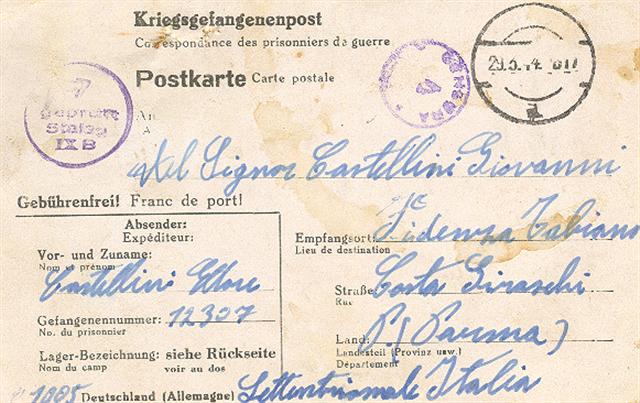 Kriegsgefangenenpost
Correspondance des prisonniers de guerre
Postkarte Carte postale
7
geprüft
Stalag
IX B
CENSURA
20.5.44
An
A
Al Signor Castellini Giovanni
Gebührenfrei! Franc de port!
Absender:
Expéditeur:
Vor- und Zuname:
Nom et prénom
Castellini Ettore
Gefangenennummer: 12307
No. du prisonnier
Lager-Bezeichnung: siehe Rückseite
Nom du camp voir au dos
Deutschland (Allemagne)
Empfangsort: Fidenza Tabiano
Lieu de destination
Straße: Costa
Rue
Land: P. (Parma)
Landesteil (Provinz usw.)
Département
Settentrionale Italia